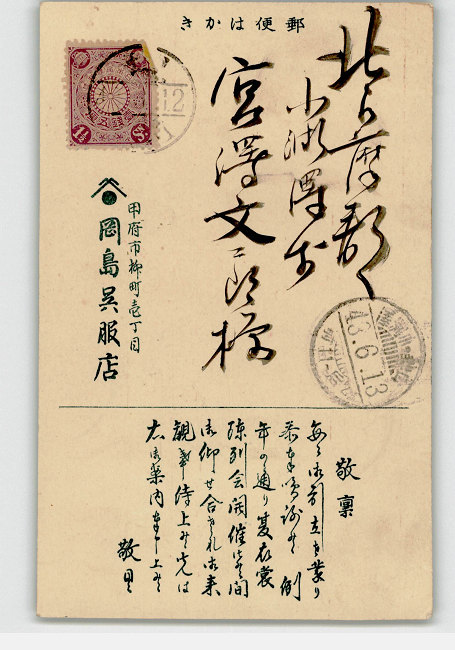 郵便はかき
北巨摩郡
小淵澤村
宮澤文二郎様
甲府市柳町壱丁目
岡島呉服店
1½ Sn.
43.6.13
敬稟
毎々御引立を蒙り
奉鳴謝候 例
年の通り夏衣裳
陳列会開催候間
御仰せ合され御来
観奉待上候先は
右御案内申上候
敬具